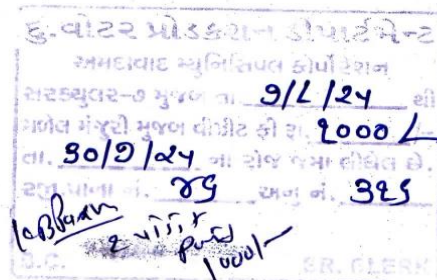 દુ.વોટર પ્રોડકશન ડીપાર્ટમેન્ટ
અમદાવાદ મ્યુનિસિપલ કોર્પોરેશન
સરક્યુલર-૭ મુજબ તા. ૭/૮/૨૫ થી
મળેલ મંજૂરી મુજબ વીઝીટ ફી રૂ. ૧૦૦૦/-
તા. ૩૦/૭/૨૫ ના રોજ જમા લીધેલ છે.
રજી.પાના નં. ૪૬ અનુ નં. ૩૨૬
1000/-
S.C. SR. CLERK